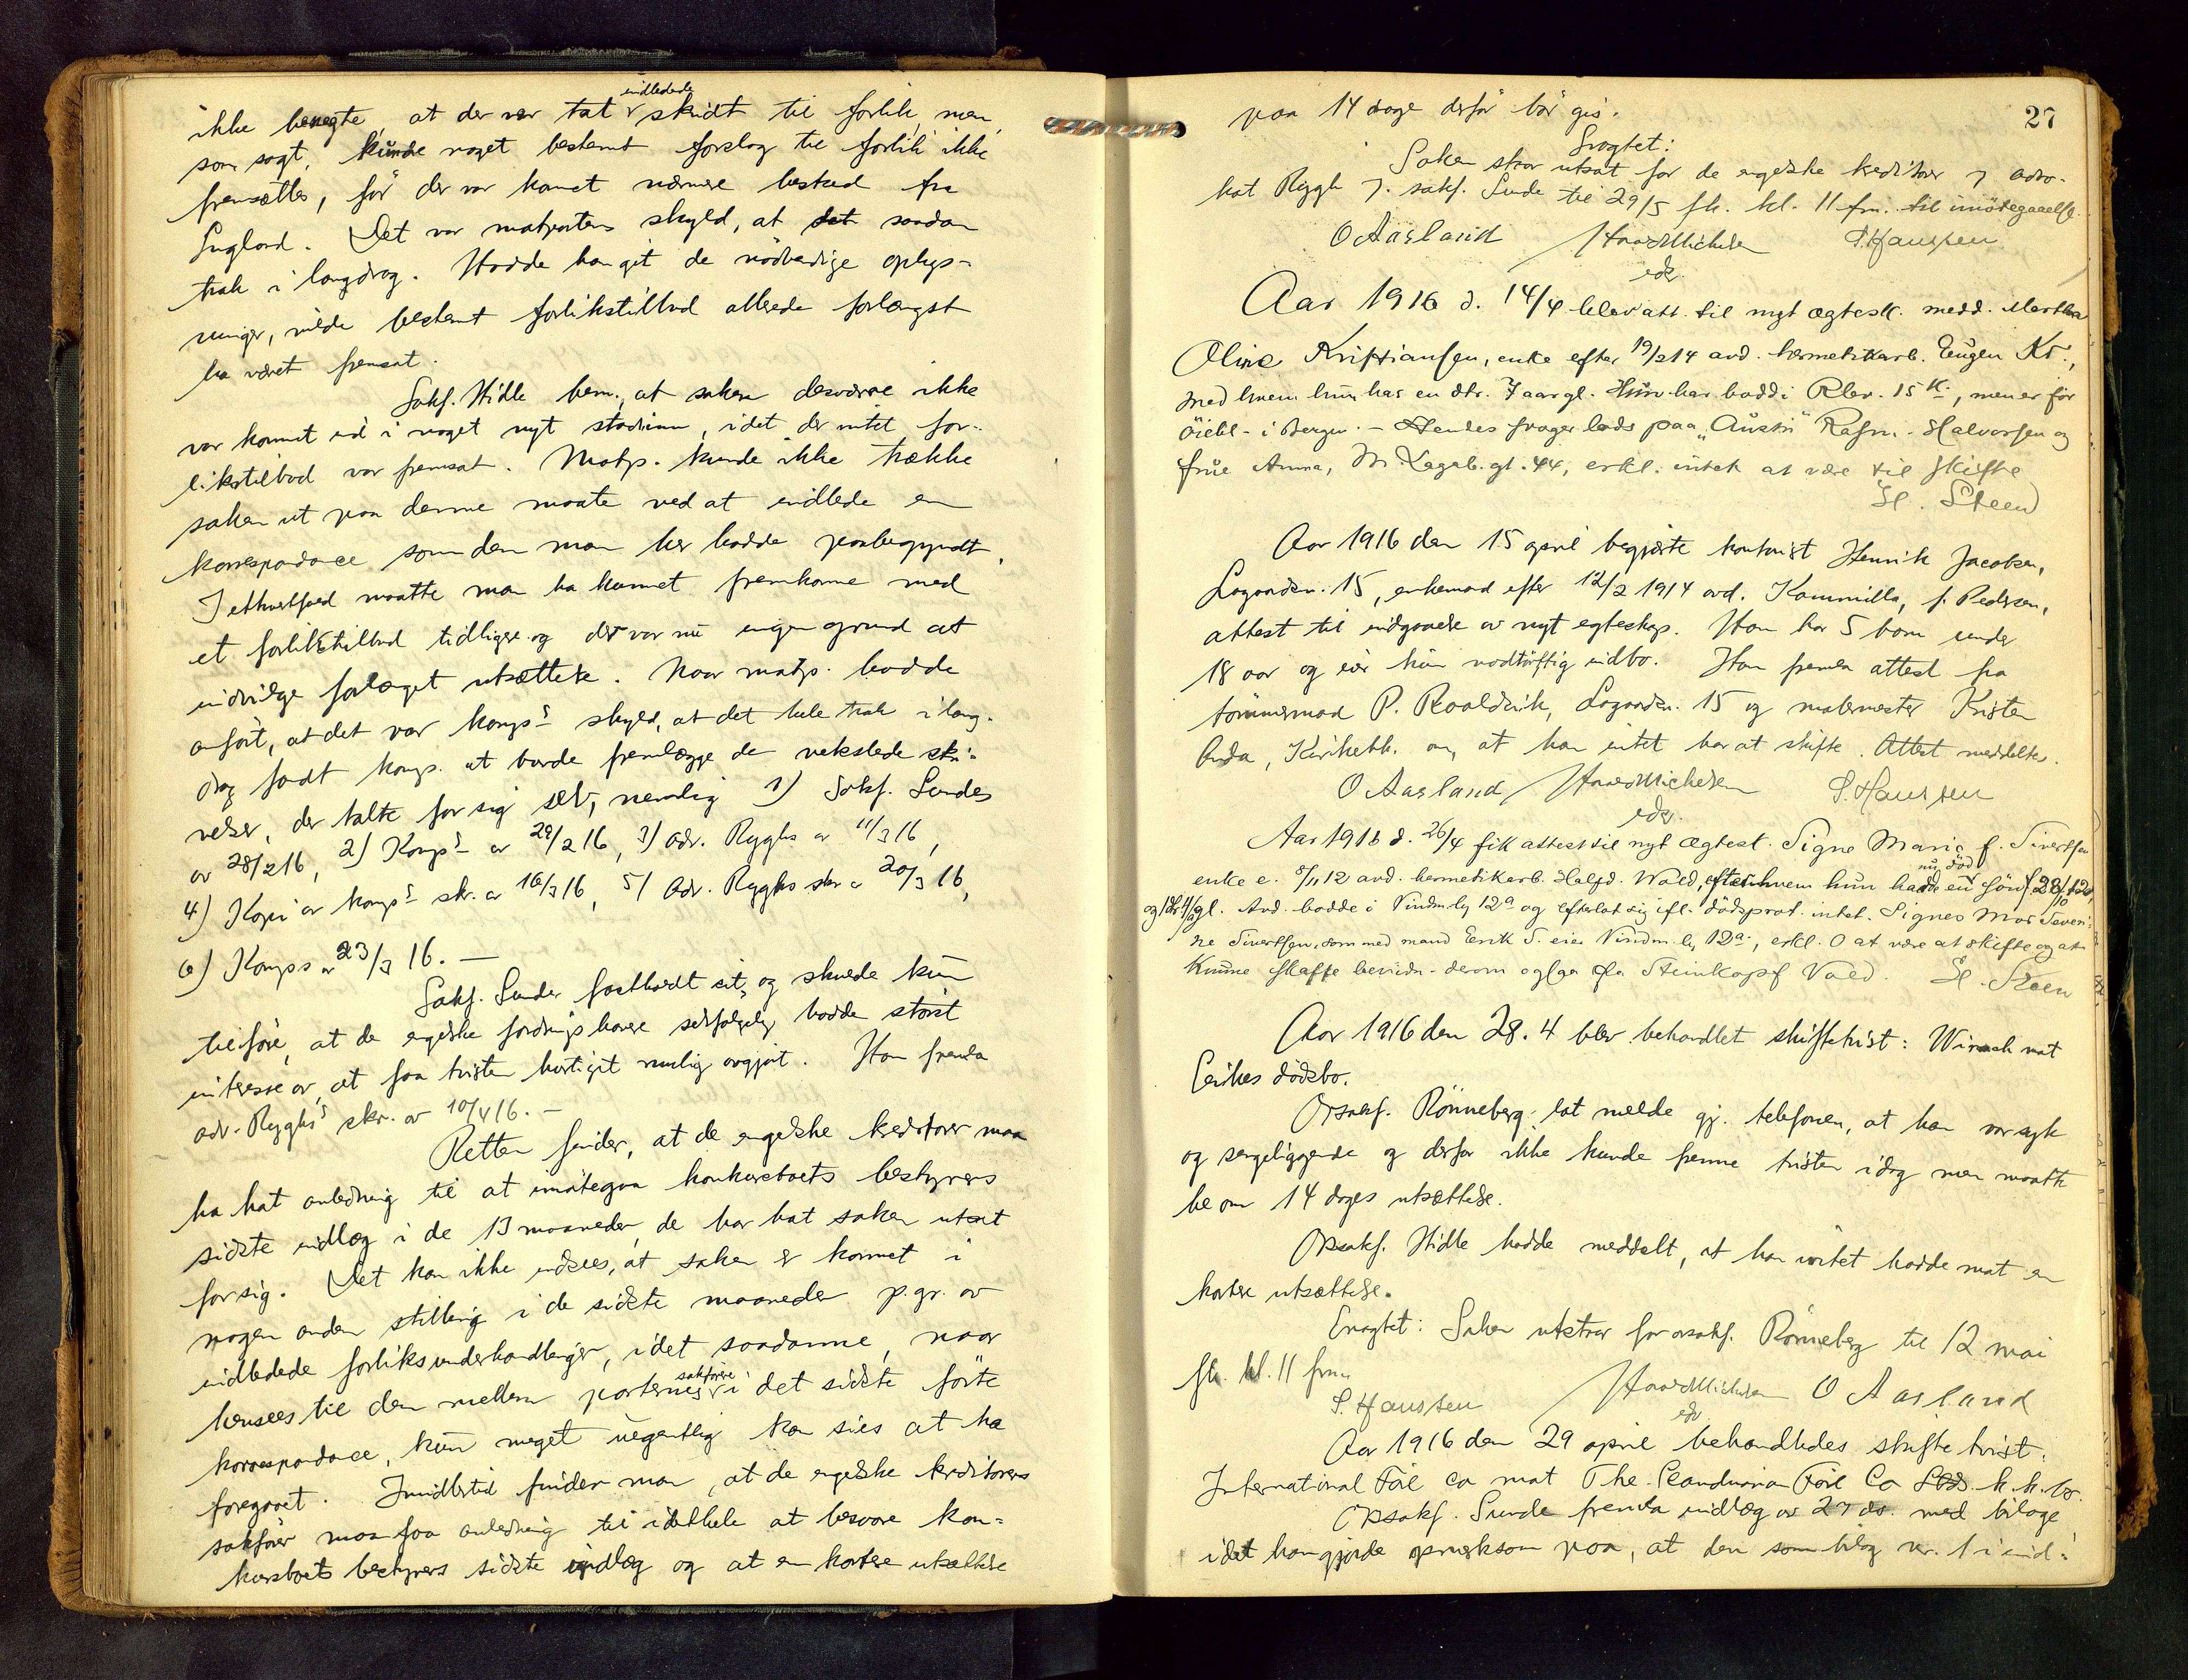 ikke benegte, at der var tat indledede skridt til forlik, men,
som sagt, kunde noget bestemt forslag til forlik ikke
fremsættes, før der var kommet nærmere besked fra
England. Det var motpartens skyld, at det saadan
trak i langdrag. Hadde han git de nødvendige oplys-
ninger, vilde bestemt forlikstilbud allerede forlængst
ha været fremsat.
Sakf. Hidle bem., at saken desværre ikke
var kommet ind i noget nyt stadium, idet der intet for-
likstilbud var fremsat. Motp. kunde ikke trække
saken ut paa denne maate ved at indlede en
korrespondance som den man her hadde paabegyndt.
I ethvertfald maatte man ha kunnet fremkomme med
et forlikstilbud tidligere og der var nu ingen grund at
indvilge forlanget utsættelse. Naar motp. hadde
anført, at det var komp's skyld, at det hele trak i lang-
drag fandt komp. at burde fremlægge de vekslede skri-
velser, der talte for sig selv, nemlig 1) Sakf. Sundes
av 28/2 16, 2) Komp's av 29/2 16, 3) Adv. Ryghs av 11/3 16,
4) Kopi av komp's skr. av 16/3 16, 5) Adv. Ryghs skr a 20/3 16,
6) Komps av 23/3 16. —
Sakf. Sunde fastholdt sit, og skulde kun
tilføie, at de engelske fordringshavere selvfølgelig hadde størst
interesse av, at faa tvisten hurtigst mulig avgjort. Han fremla
adv. Ryghs skr. av 10/4 16. —
Retten finder, at de engelske kreditorer maa
ha hat anledning til at imøtegaa konkursboets bestyrers
sidste indlæg i de 13 maaneder, de har hat saken utsat
for sig. Det kan ikke indsees, at saken er kommet i
nogen anden stilling i de sidste maaneder p. gr. av
indledede forliksunderhandlinger, idet saadanne, naar
hensees til den mellem parternes sakførere i det sidste førte
korrespondance, kun meget uegentlig kan sies at ha
foregaaet. Imidlertid finder man, at de engelske kreditorers
sakfører maa faa anledning til idethele at besvare kon-
kursboets bestyrers sidste indlæg og at en kortere utsættelse
27
paa 14 dage derfor bør gis.
Eragtet:
Saken staar utsat for de engelske kreditorer v advo-
kat Rygh v. sakf. Sunde til 29/5 fk. kl. 11 fm. til imøtegaaelse.
O Aasland Haar Michelsen S. Hanssen
edv.
Aar 1916 d. 14/4 blev att. til nyt ægtesk. medd. Martha
Oline Kristiansen, enke efter 19/2 14 avd. hermetikarb. Eugen Kr.,
med hvem hun har en dtr. 7 aar gl. Hun har bodd i Rlev. 15 K., men er for
øiebl. i Bergen. — Hendes svoger lods paa "Austri" Rasm. Halvorsen og
frue Anna, M. Lagab. gt. 44, erkl. intet at være til skifte
H. Steen
Aar 1916 den 15 april begjærte kontorist Henrik Jacobsen,
Lagaardsv. 15, enkemand efter 12/2 1914 avd. Kammilla, f. Pedersen,
attest til indgaaelse av nyt egteskap. Han har 5 barn under
18 aar og eier kun nødtørftig indbo. Han fremla attest fra
tømmermand P. Roaldsvik, Lagaardsv. 15 og malermester Kristen
Anda, Kirkebk. om, at han intet har at skifte. Attest meddeltes.
O Aasland Haar Michelsen S. Hanssen
edv.
Aar 1916 d. 26/4 fik attest til nyt ægtesk. Signe Marie f. Sivertsen
enke e. 8/11 12 avd. hermetikarb. Halfd. Wold, efter hvem hun hadde en nu død søn f. 28/10 12,
og 1 dtr. gl. Avd. bodde i Vindm.bg 12a og efterlot sig ifl. dødsprot. intet. Signes mor Severi-
ne Sivertsen, som med mand Erik S. eier Vindm.bg 12a., erkl. O at være at skifte og at
kunne skaffe bevidn. derom ogsaa fra Steinkopf Vold. H. Steen
Aar 1916 den 28. 4 blev behandlet skiftetvist: Winsch mot
Erikes dødsbo.
Orsakf. Rønneberg lot melde gj. telefonen, at han var syk
og sengeliggende og derfor ikke kunde fremme tvisten idag men maatte
be om 14 dages utsættelse.
Orsakf. Hidle hadde meddelt, at han intet hadde mot en
kortere utsættelse.
Eragtet: Saken utstaar for orsakf. Rønneberg til 12 mai
fk. kl. 11 fm.
S. Hanssen Haar Michelsen O Aasland
edv
Aar 1916 den 29 april behandledes skiftetvist:
International Foil Co mot The Scandinavian Foil Co Ltds. k. k. bo.
Orsakf. Sunde fremla indlæg av 27 ds. med bilage
idet han gjorde opmerksom paa, at den som bilag nr. 1 i ind-